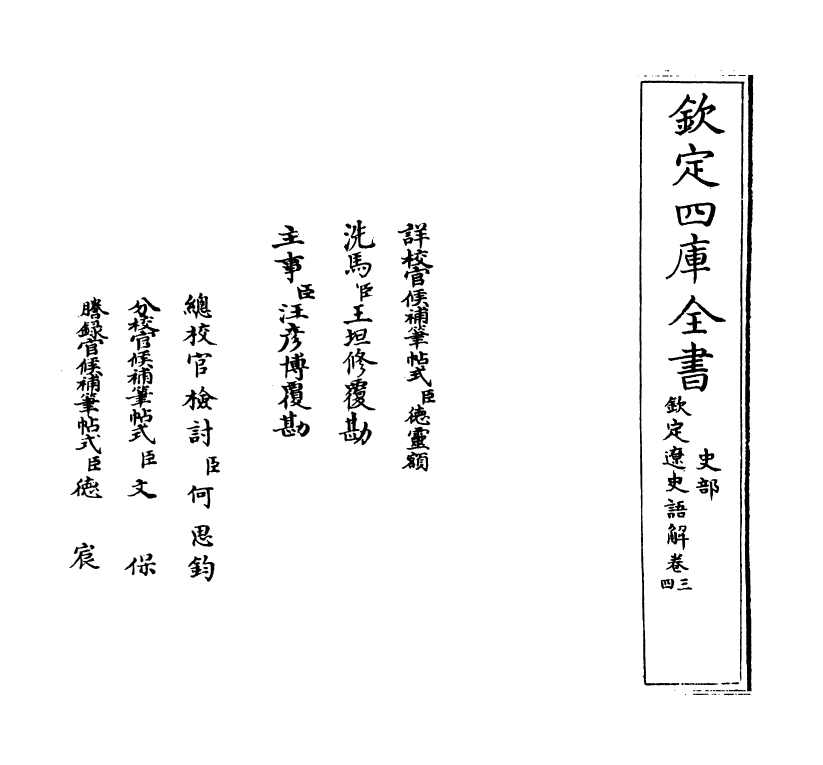 欽定四庫全書
史部
欽定遼史語解卷三四
詳校官候補筆帖式臣德靈額
洗馬臣王坦修覆勘
主事臣汪彥博覆勘
總校官檢討臣何思鈞
分校官候補筆帖式臣文保
謄錄官候補筆帖式臣德宸